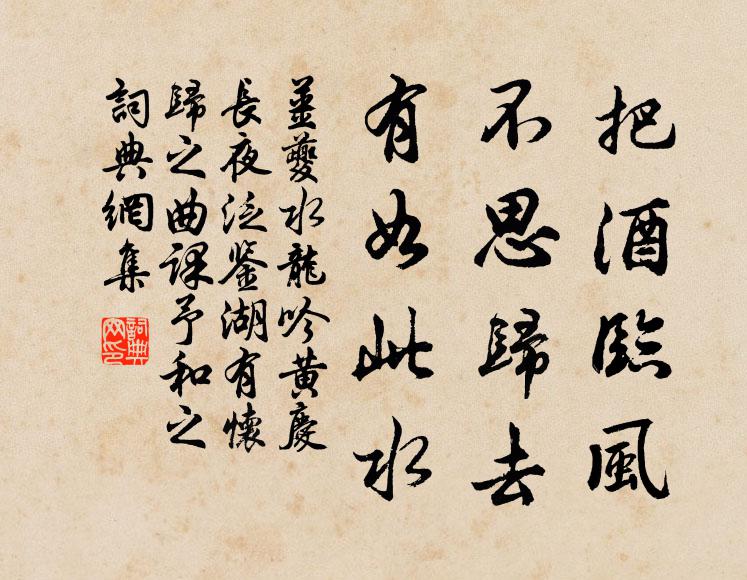 把酒臨風
不思歸去
有如此水
姜夔水龍吟黄慶
長夜泛鉴湖有懷
歸之曲課予和之
詞典網集
詞典
网印